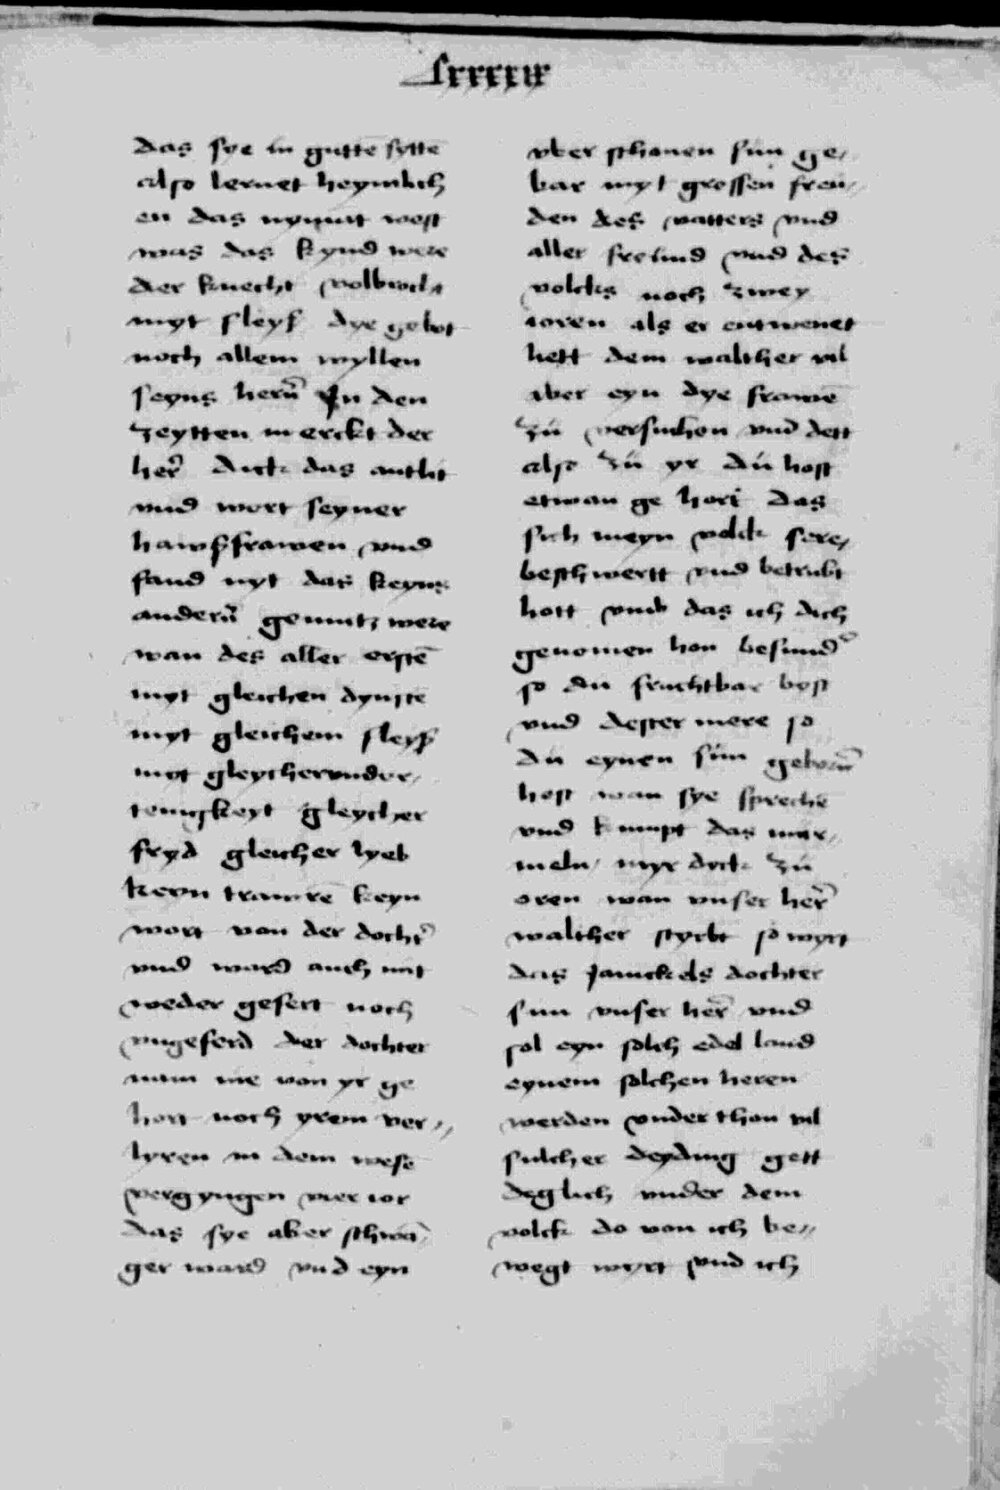 das sye in guttē syttē
also lernet heymlich
en das nymāt west
was das kynd were
der knecht volbrocht
myt fleyß dye gebot
noch allem wyllen
seyns herñ In den
zeytten merckt der
her̃ dick das antlit
vnd wort seyner
hawßfrawen vnd
fand nyt das keyns
anderñ gemutz were
wan des aller erstē
myt gleichen dynste
myt gleichem fleyß
myt gleycher vnder,
tenigkeyt gleycher
fryd gleicher lyeb
keyn trawrē keyn
wort von der docht̃
vnd ward auch nit
weder gefert noch
vngeferd der dochter
nam nie von yr ge
hort noch yrem ver,,
lyren in dem wesē
vergyngen vier ior
das sye aber schwā,
ger ward vnd eyn
vber schonen sun ge,
bar myt grossen freu,
den des vatters vnd
aller freund vnd des
volcks noch zwey
ioren als er entwenet
hett dem walther vil
aber eyn dye frawē
zů versuchen vnd dett
also zů yr du host
etwan ge hort das
sich meyn volck sere,
beschwertt vnd betrubt
hott vmb das ich dich
genomen hon besund̃
so du fruchtbar byst
vnd dester mere so
du eynen sun geborñ
host wan sye sprechē
vnd kumpt das mur,
meln, myr dick zů
oren wan vnser her̃
walther styrbt so wyrt
das Janickels dochter
sun vnser her̃ vnd
sol eyn solch edel land
eynem solchen heren
werden vnder thon vil
sulcher deyding gett
deglich vnder dem
volck do von ich be,,
wegt wyrt vnd ich